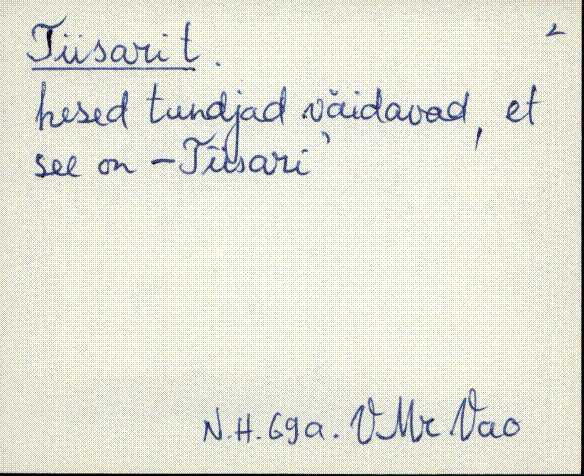 Tiisarit. 2
hesed tundjad väidavad, et
see on – Tiisari'
N.H. 69a. VMr Vao